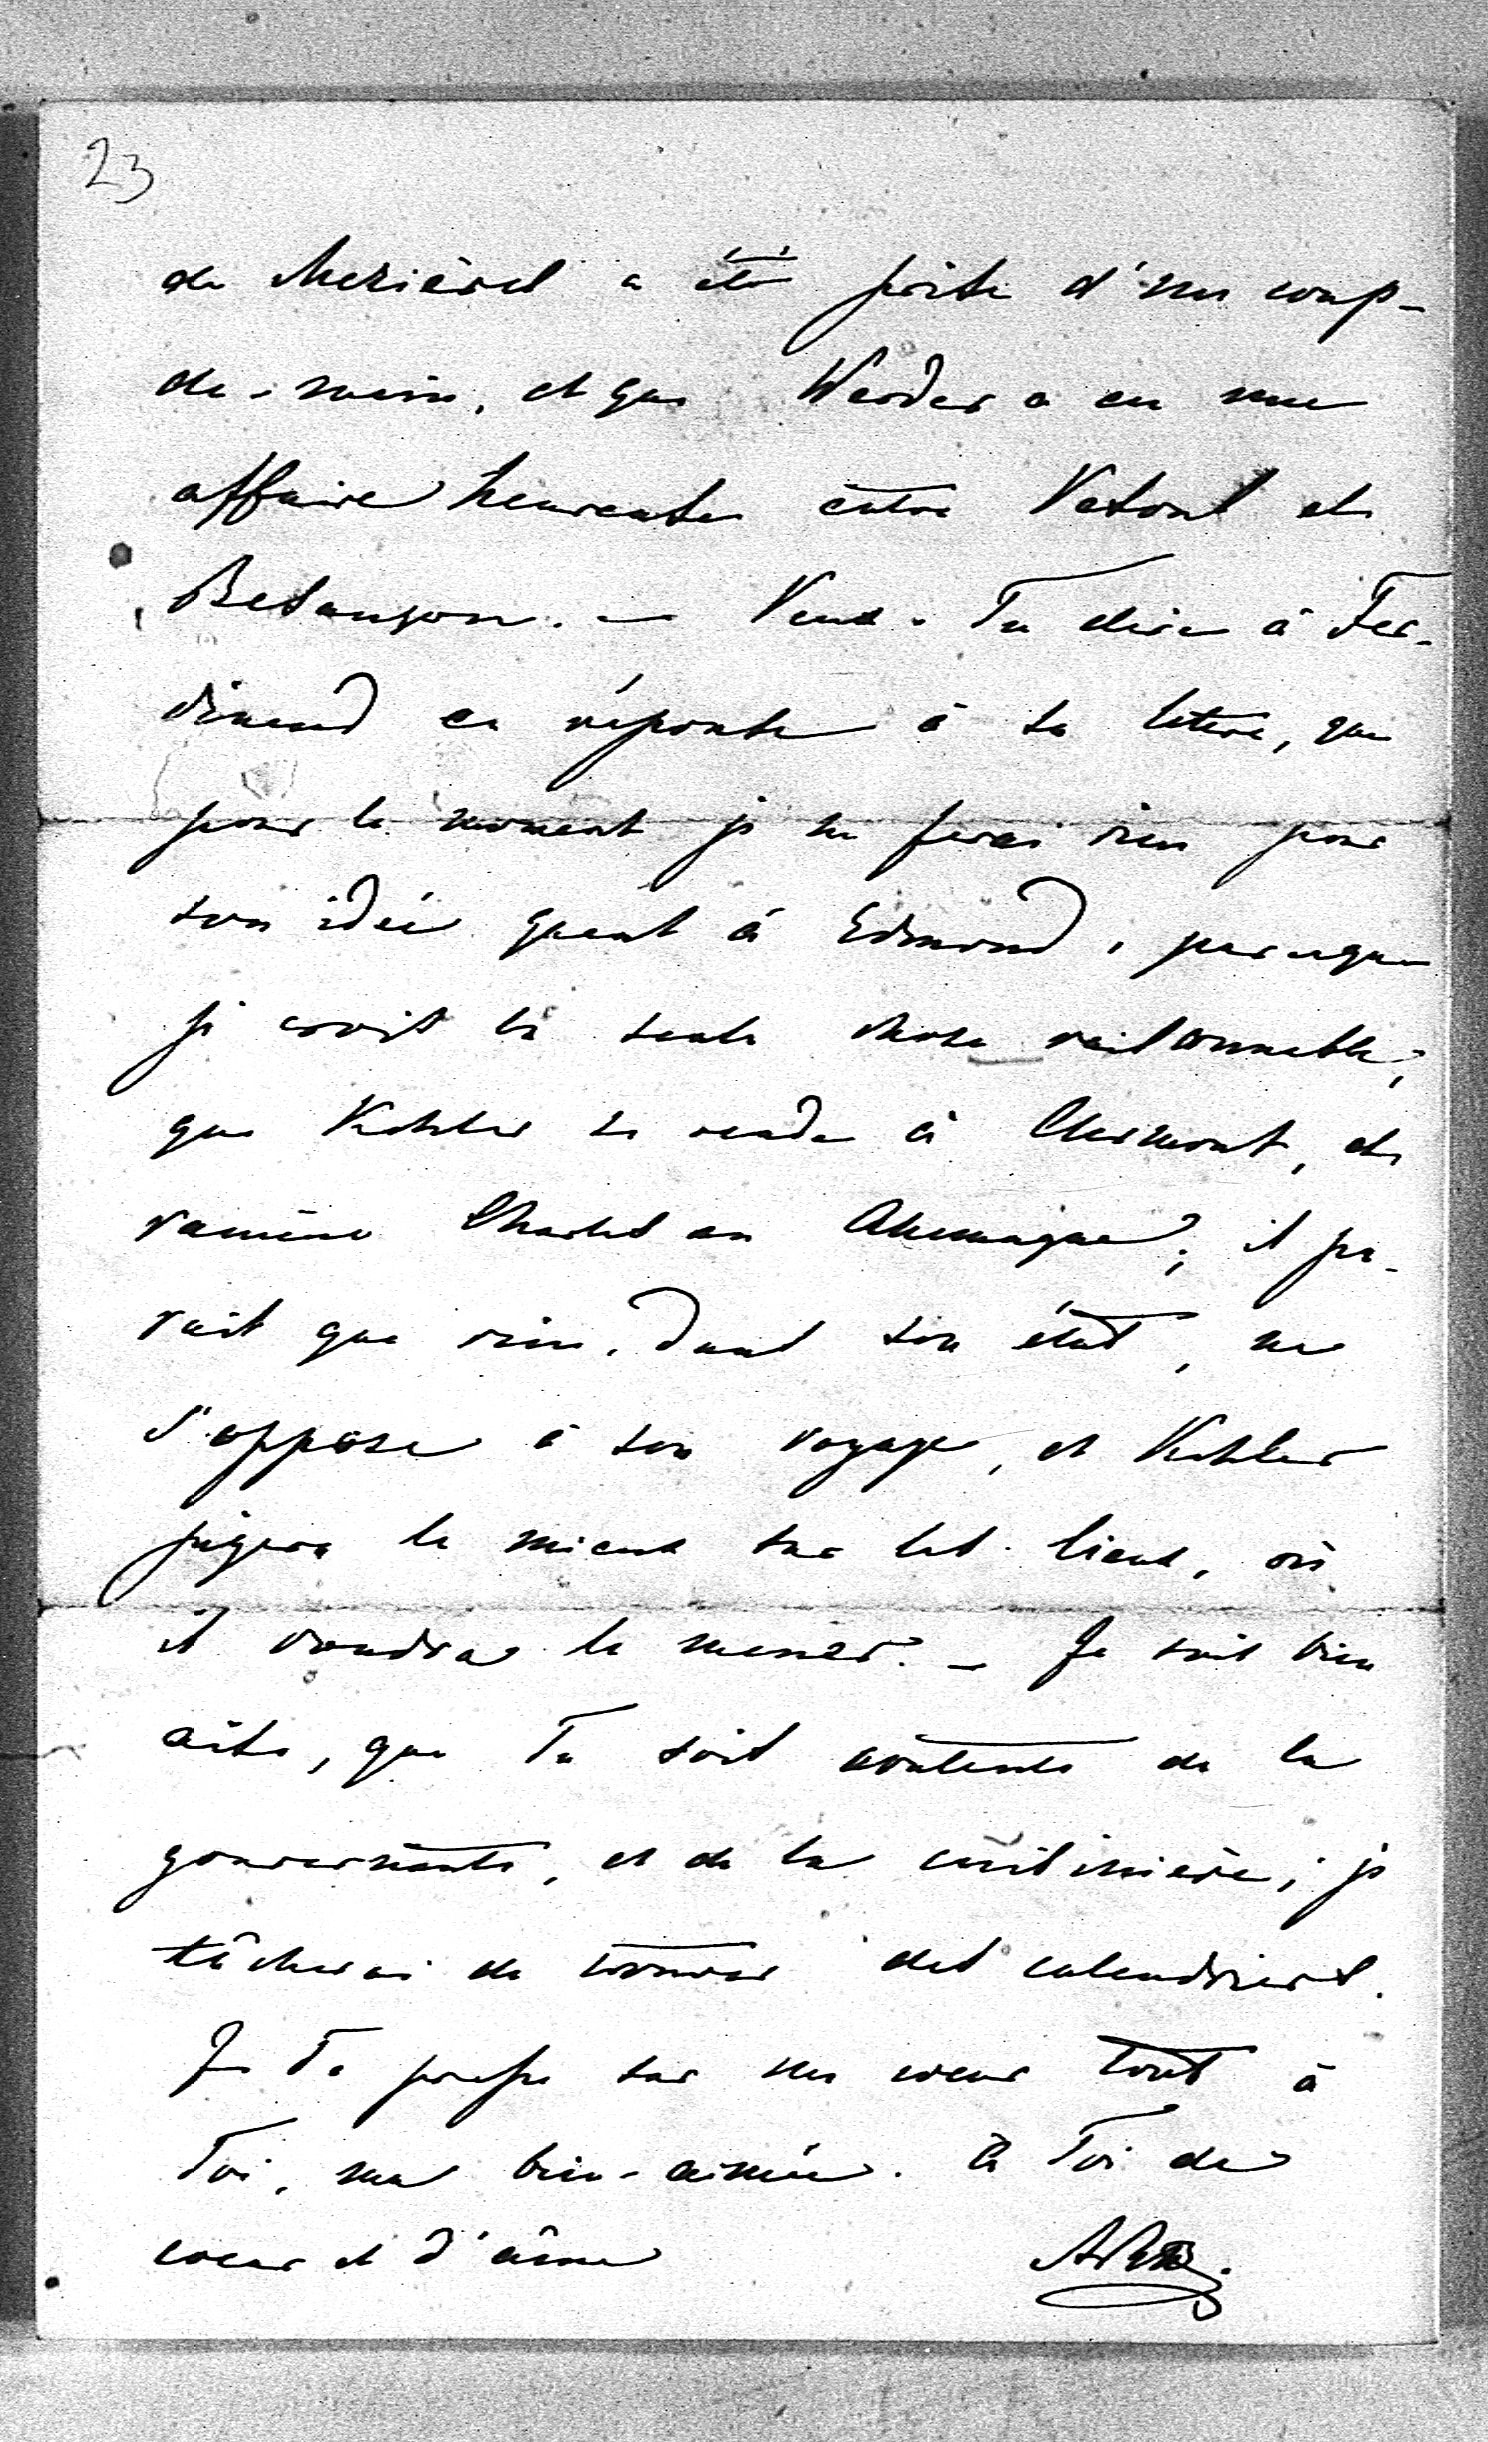 23
de Mezières a été prise d'un coup-
de-main, et que Werder a eu une
affaire heureuse entre Vesoul et
Besançon. — Veux-Tu dire à Fer-
dinand en réponse à sa lettre, que
pour le moment je ne ferai rien pour
son idée quant à Edmond, parceque
je crois la seule chose raisonnable,
que Kohler se rende à Clermont, et
ramène Charles en Allemagne; il pa-
rait que rien, dans son état, ne
s'oppose à son voyage, et Kohler
jugera le mieux sur les lieux, où
il voudra le mener. — Je suis bien
aise, que Tu sois contente de la
gouvernante, et de la cuisinière; je
tâcherai de trouver des calendriers.
Je Te presse sur un coeur tout à
Toi, ma bien-aimée. à Toi de
coeur et d'âme